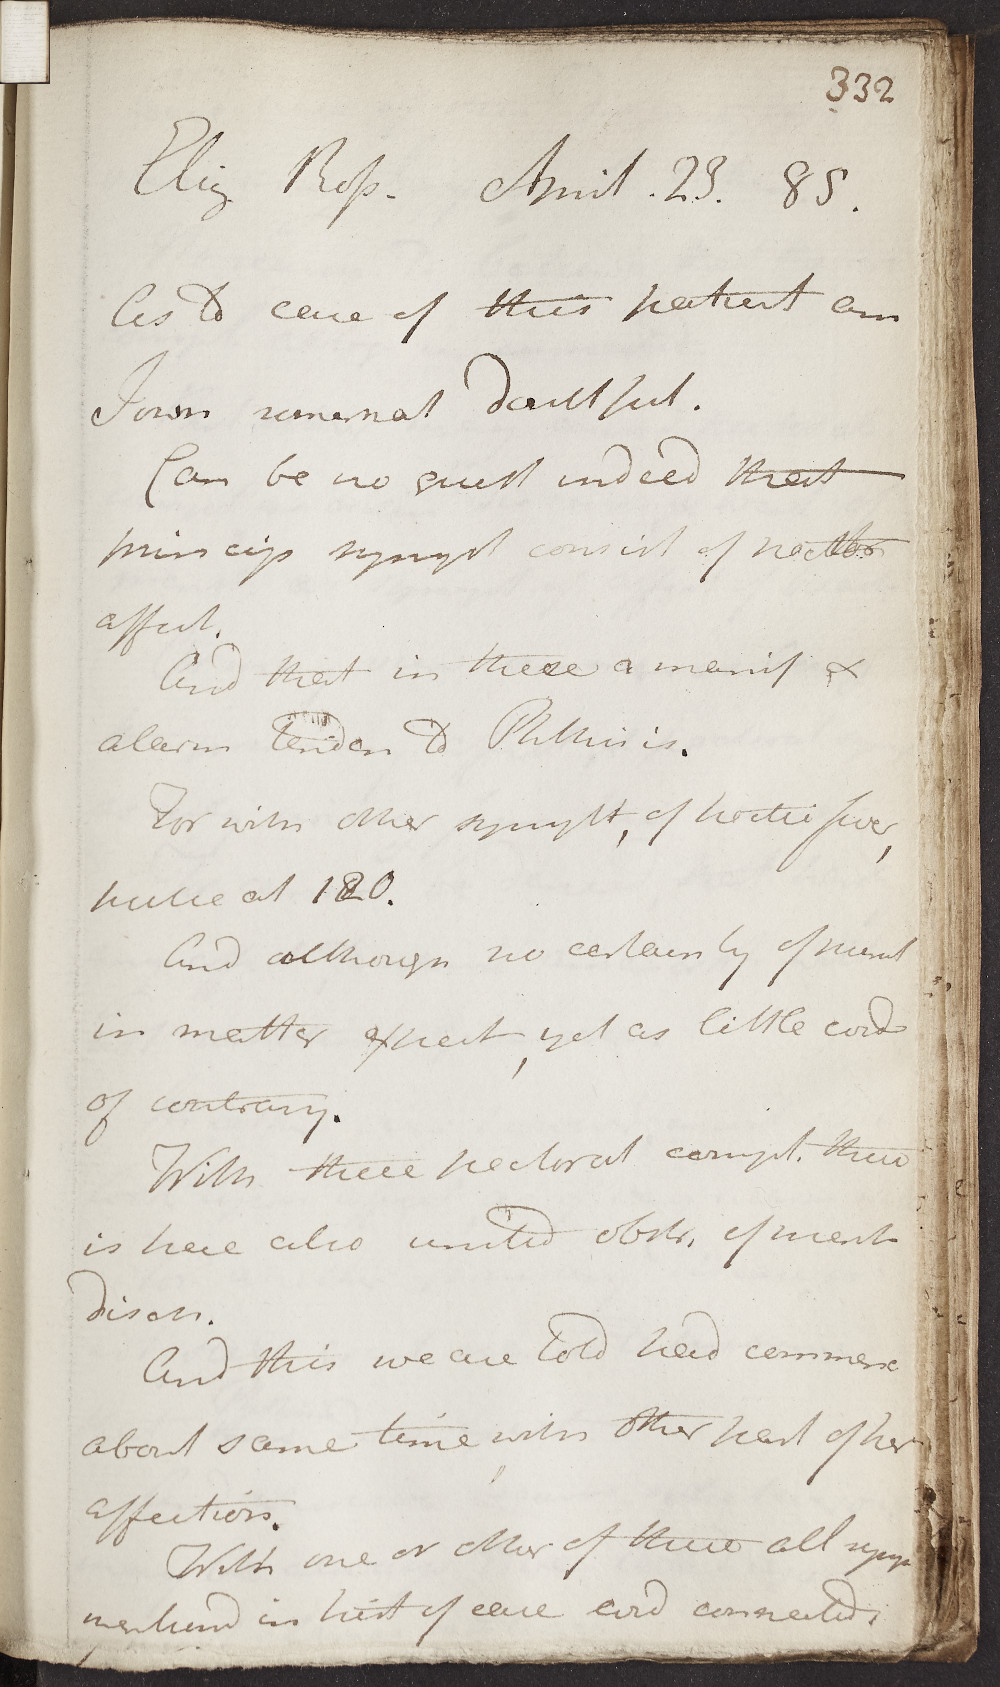 332
Eliz Ross. April. 23. 85.
As to case of this patient am
I own somewhat doubtful.
Can be no quest indeed that
princip sympt consist of pector
affect.
And that in these a manif &
alarm tenden to Phthisis.
For with other sympt, of hectic fever,
pulse at 120.
And although no certainty of purul
in matter expect, yet as little evid
of contrary.
With these pectoral compl. there
is here also united obstr. of menst
disch.
And this we are told had commenc
about same time, with other part of her
affections.
With one or other of these all symp
mentiond in hist of case evid connected.